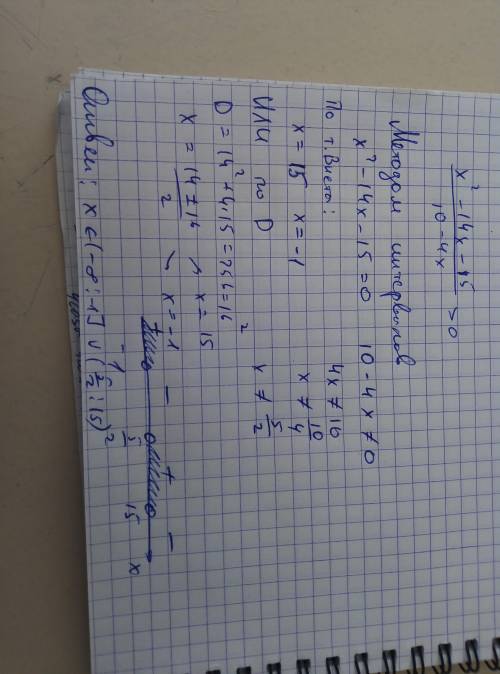 x² - 14x - 15 / 10 - 4x > 0
Методом интервалов
x² - 14x - 15 = 0 10 - 4x ≠ 0
По т. Виета: 4x ≠ 10
x = 15 x = -1 x ≠ 10/4
Или по D x ≠ 5/2
D = 14² + 4·15 = 256 = 16²
x = 14 ± 14 / 2 ↗ x = 15
↘ x = -1
+ - + -
-1 5/2 15 x
Ответ: x ∈ (-∞; -1] ∪ (5/2; 15)